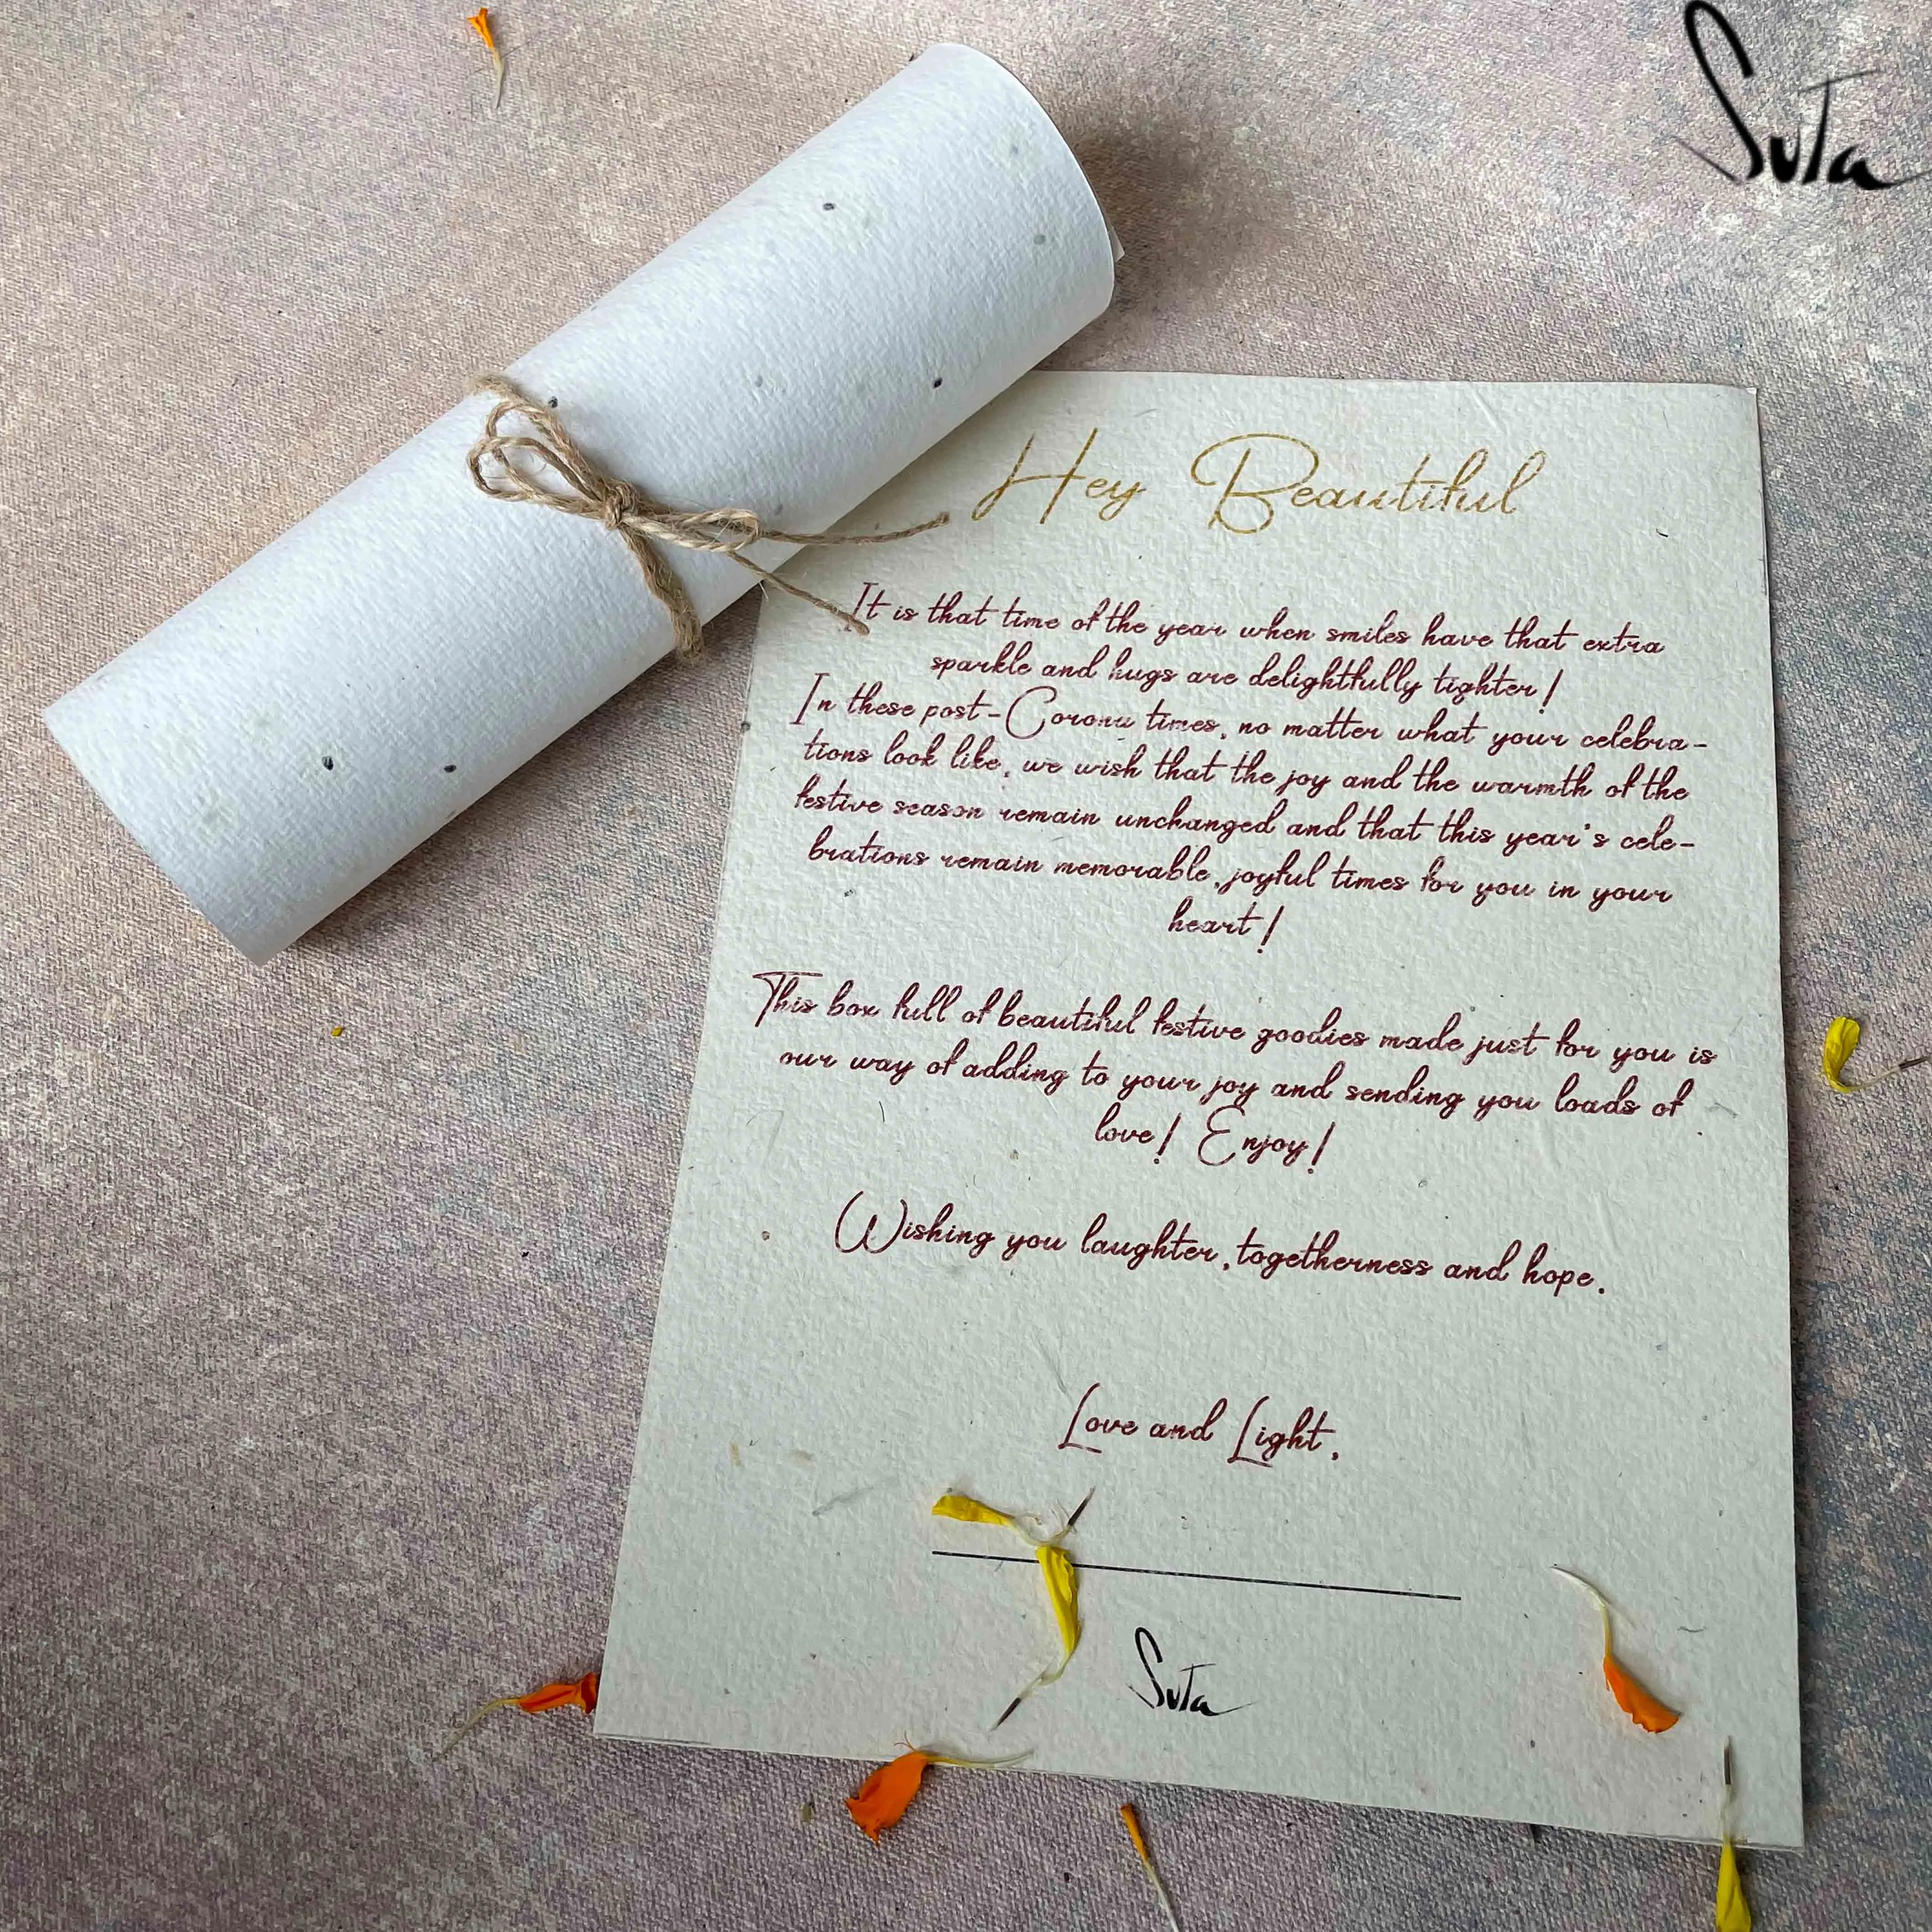 SuTa
Hey Beautiful
It is that time of the year when smiles have that extra
sparkle and hugs are delightfully tighter!
In these post-Corona times, no matter what your celebra-
tions look like, we wish that the joy and the warmth of the
festive season remain unchanged and that this year's cele-
brations remain memorable, joyful times for you in your
heart!
This box full of beautiful festive goodies made just for you is
our way of adding to your joy and sending you loads of
love! Enjoy!
Wishing you laughter, togetherness and hope.
Love and Light,
SuTa